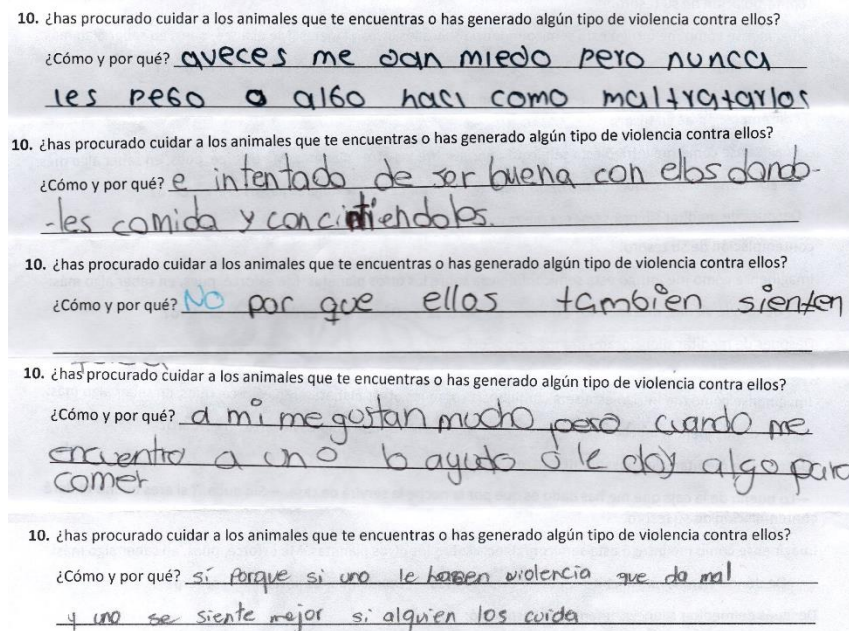 10. ¿has procurado cuidar a los animales que te encuentras o has generado algún tipo de violencia contra ellos?
¿Cómo y por qué? aveces me dan miedo pero nunca
les pego o algo haci como maltratarlos
10. ¿has procurado cuidar a los animales que te encuentras o has generado algún tipo de violencia contra ellos?
¿Cómo y por qué? e intentado de ser buena con ellos dando-
-les comida y concintiendoles.
10. ¿has procurado cuidar a los animales que te encuentras o has generado algún tipo de violencia contra ellos?
¿Cómo y por qué? No por que ellos tambien sienten
10. ¿has procurado cuidar a los animales que te encuentras o has generado algún tipo de violencia contra ellos?
¿Cómo y por qué? a mi me gustan mucho pero cuando me
encuentro a uno lo ayudo o le doy algo para
comer
10. ¿has procurado cuidar a los animales que te encuentras o has generado algún tipo de violencia contra ellos?
¿Cómo y por qué? sí porque si uno le hacen violencia que da mal
y uno se siente mejor si alguien los cuida